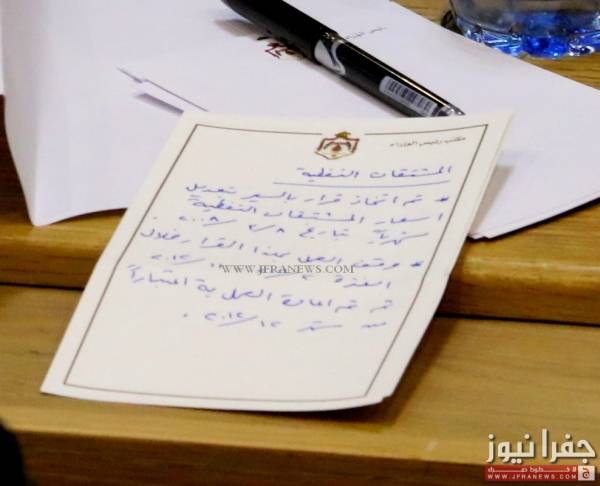 مكتب رئيس الوزراء
المشتقات النفطية
* تم اتخاذ قرار بالسير بتعديل
اسعار المشتقات النفطية
شهرياً بتاريخ ٢٠٠٨/٢/٨ .
* وقف العمل بهذا القرار خلال
الفترة
ثم تم اعادة العمل به اعتباراً
من شهر ٢٠١٢/١٢ .
WWW.JFRANEWS.COM
جفرا نيوز
WWW.JFRANEWS.COM